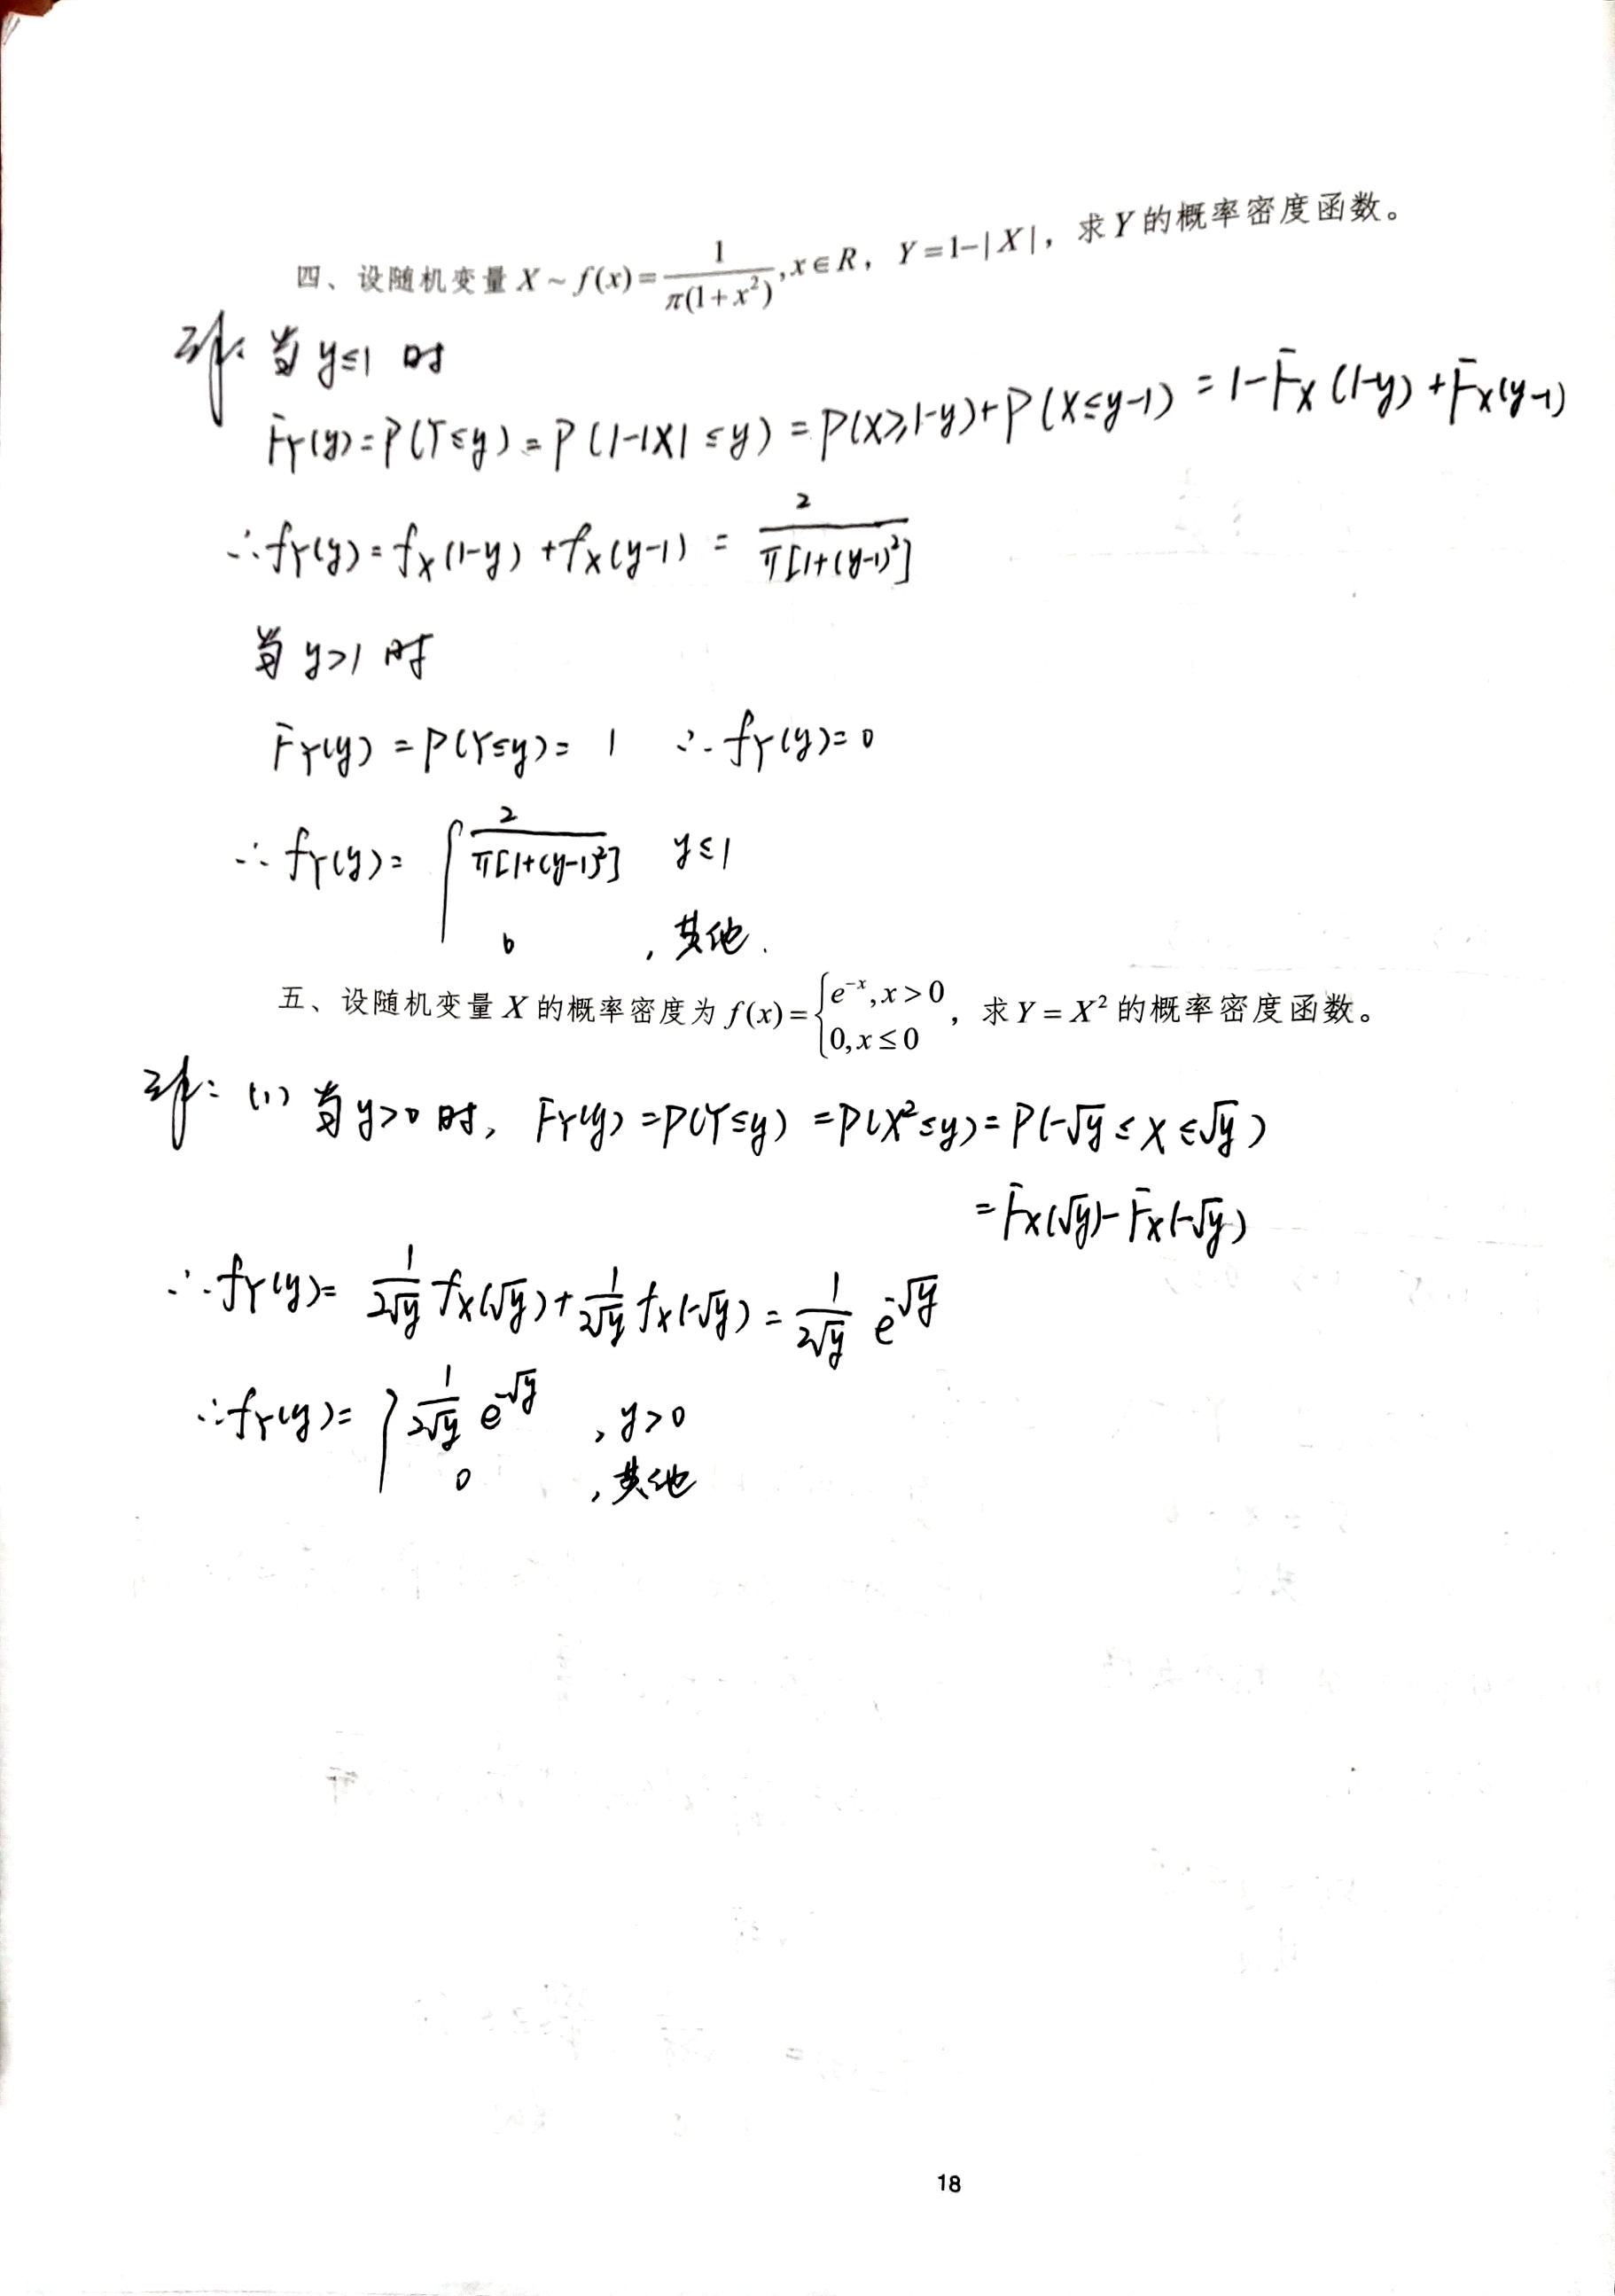 四、设随机变量 X ~ f(x) = 1/(π(1+x²)), x∈R， Y=1-|X|，求Y的概率密度函数。
解: 当 y≤1 时
F_Y(y)=P(Y≤y)=P(1-|X|≤y)=P(X≥1-y)+P(X≤y-1)=1-F_X(1-y)+F_X(y-1)
∴f_Y(y)=f_X(1-y)+f_X(y-1)=2/(π[1+(y-1)²])
当 y>1 时
F_Y(y)=P(Y≤y)=1 ∴f_Y(y)=0
∴f_Y(y)={ 2/(π[1+(y-1)²]) y≤1
0 ,其他.
五、设随机变量 X 的概率密度为 f(x)={ e^{-x}, x>0
0, x≤0 ，求 Y=X² 的概率密度函数。
解: (1) 当 y>0 时, F_Y(y)=P(Y≤y)=P(X²≤y)=P(-√y≤X≤√y)
=F_X(√y)-F_X(-√y)
∴f_Y(y)= 1/(2√y) f_X(√y)+1/(2√y) f_X(-√y)=1/(2√y) e^{-√y}
∴f_Y(y)={ 1/(2√y) e^{-√y} ,y>0
0 ,其他
18